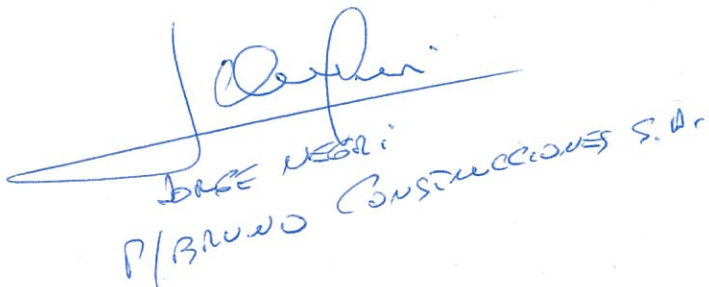 JORGE NEGRI
P/BRUNO CONSTRUCCIONES S.A.